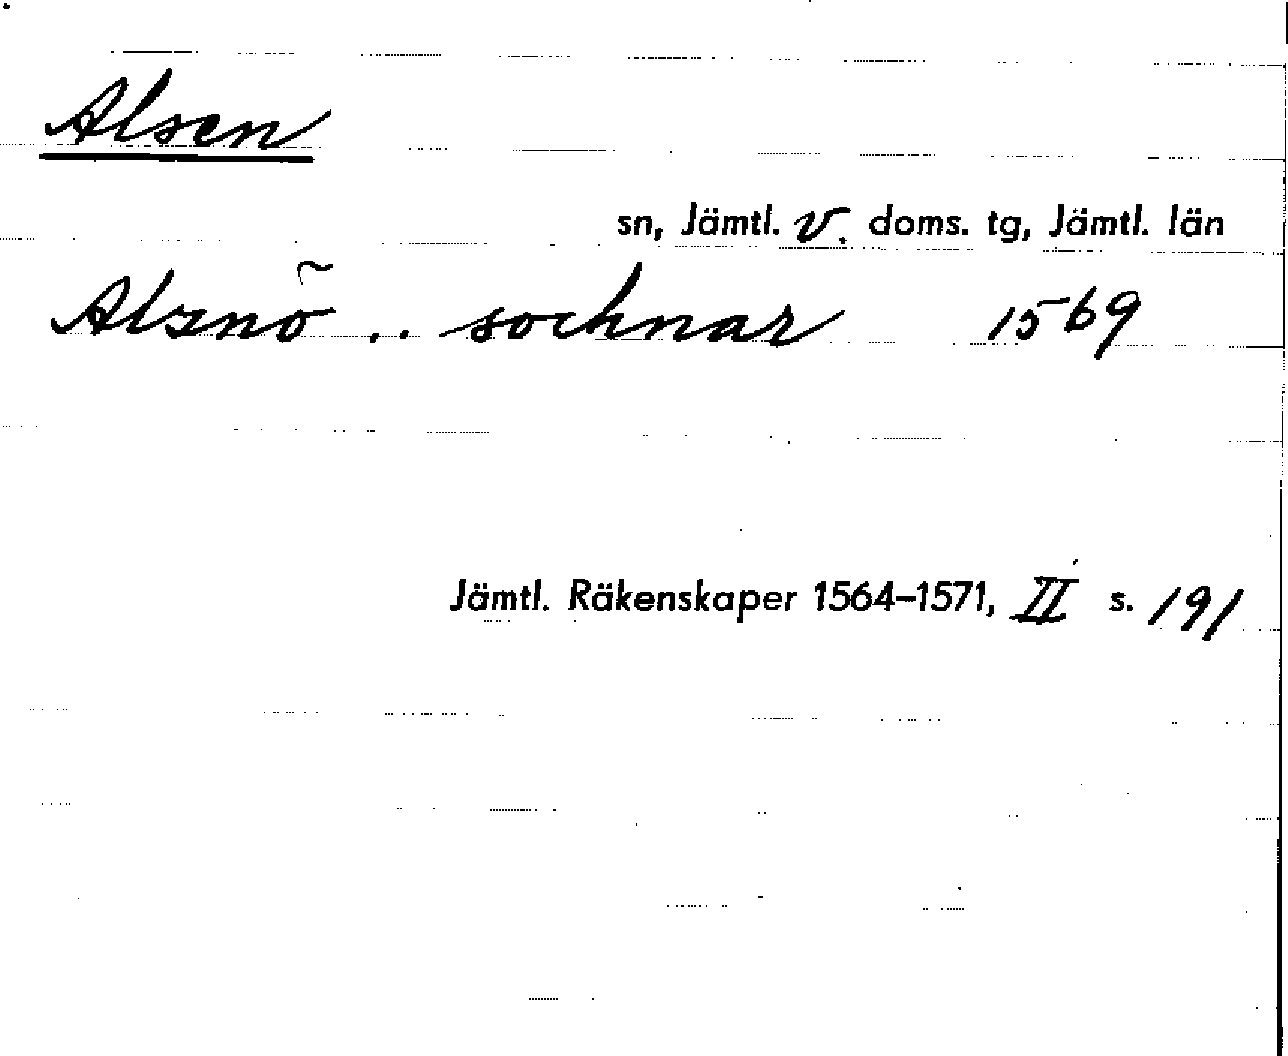 Alsen
sn, Jämtl. v. doms. tg, Jämtl. län
Alsnõ .. sochnar 1569
Jämtl. Räkenskaper 1564–1571, II s. 191